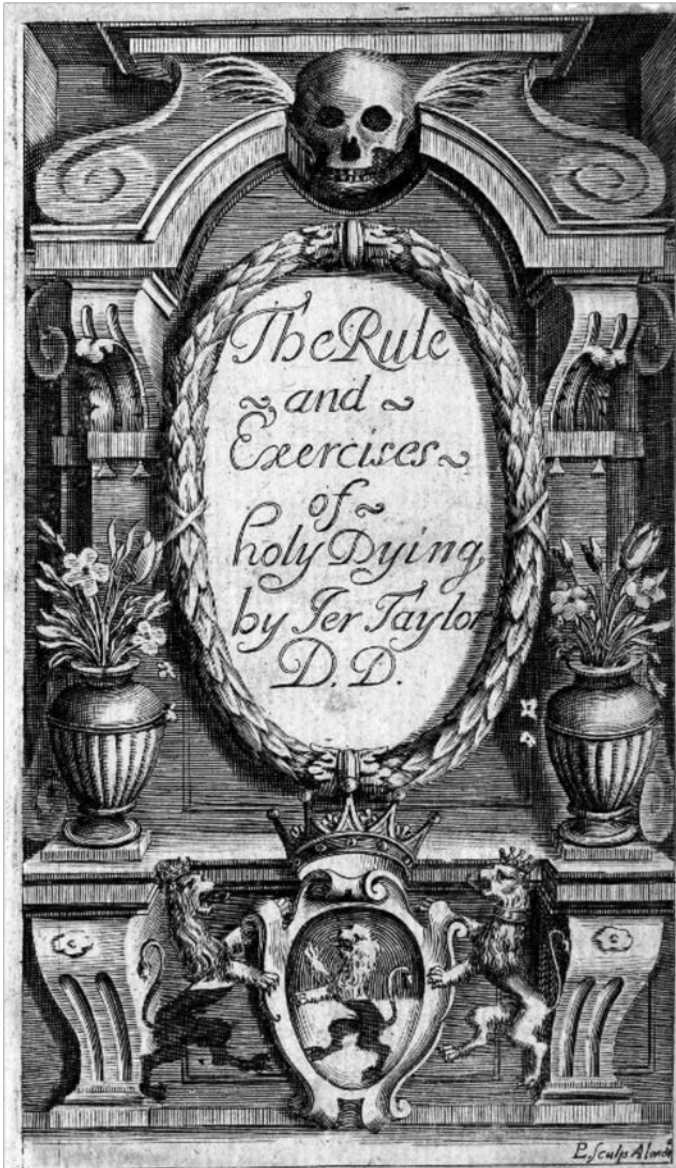 The Rule
and
Exercises
of
holy Dying,
by Jer Taylor
D. D.
P. Sculp